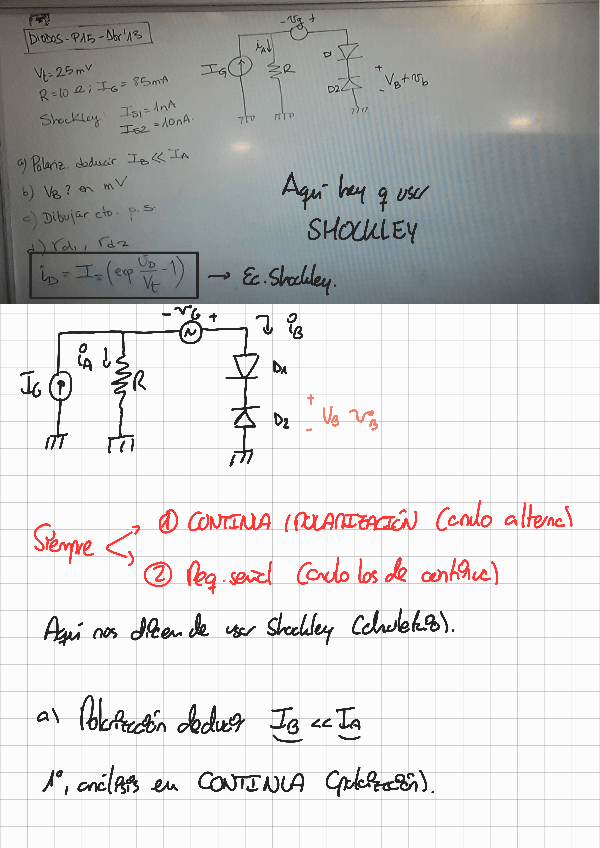 DIODOS-P15-Abr'13
- vg +
Vt = 25 mV
R = 10 Ω ; IG = 85 mA
Shockley: IS1 = 1 nA
IS2 = 10 nA.
IG
iA
R
D1
D2
+
- VB + vb
a) Polariz. deducir IB << IA
b) VB? en mV
c) Dibujar cto. p.s.
d) rd1, rd2
Aquí hay q usar
SHOCKLEY
iD = Is (exp UD/Vt - 1) → Ec. Shockley.
- VG +
iB
iA
IG
R
D1
D2
+
- VB VB
Siempre
① CONTINUA (POLARIZACIÓN) (anulo alterna)
② Peq. señal (anulo las de continua)
Aquí nos dicen de usar Shockley (chuletas).
a) Polarización deducir IB << IA
1º, análisis en CONTINUA (polarización).